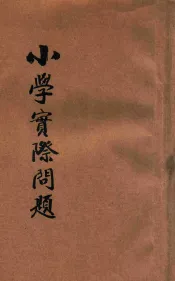 小學實際問題